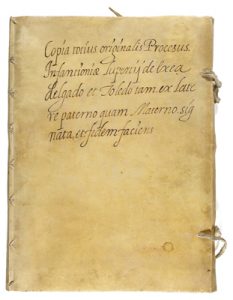 Copia totius originalis Processus.
Infantioniæ Luperij de Exea
delgado et Toledo tam ex late
re paterno quam Materno. sig
nata, et fidem faciens